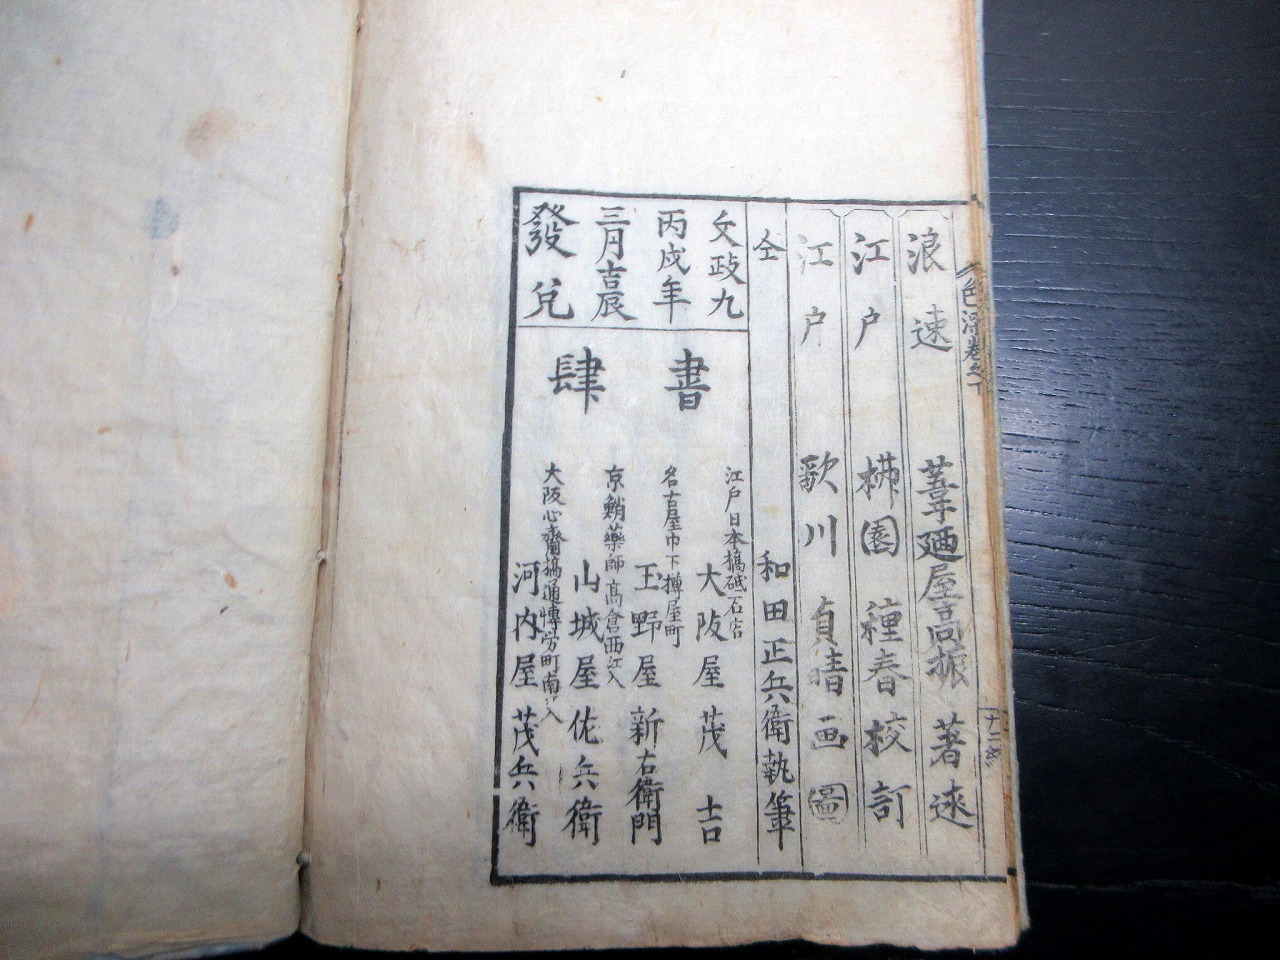 浪速 葦廼屋高振 著述
江戸 楳園種春校訂
江戸 歌川貞晴画圖
仝 和田正兵衛執筆
文政九
丙戌年
三月吉辰
發兌
書肆
江戸日本橋砥石店
大阪屋茂吉
名古屋巾下樽屋町
玉野屋新右衛門
京鮹藥師高倉西江入
山城屋佐兵衛
大阪心齋橋通博労町南入
河内屋茂兵衛
色深巻之下